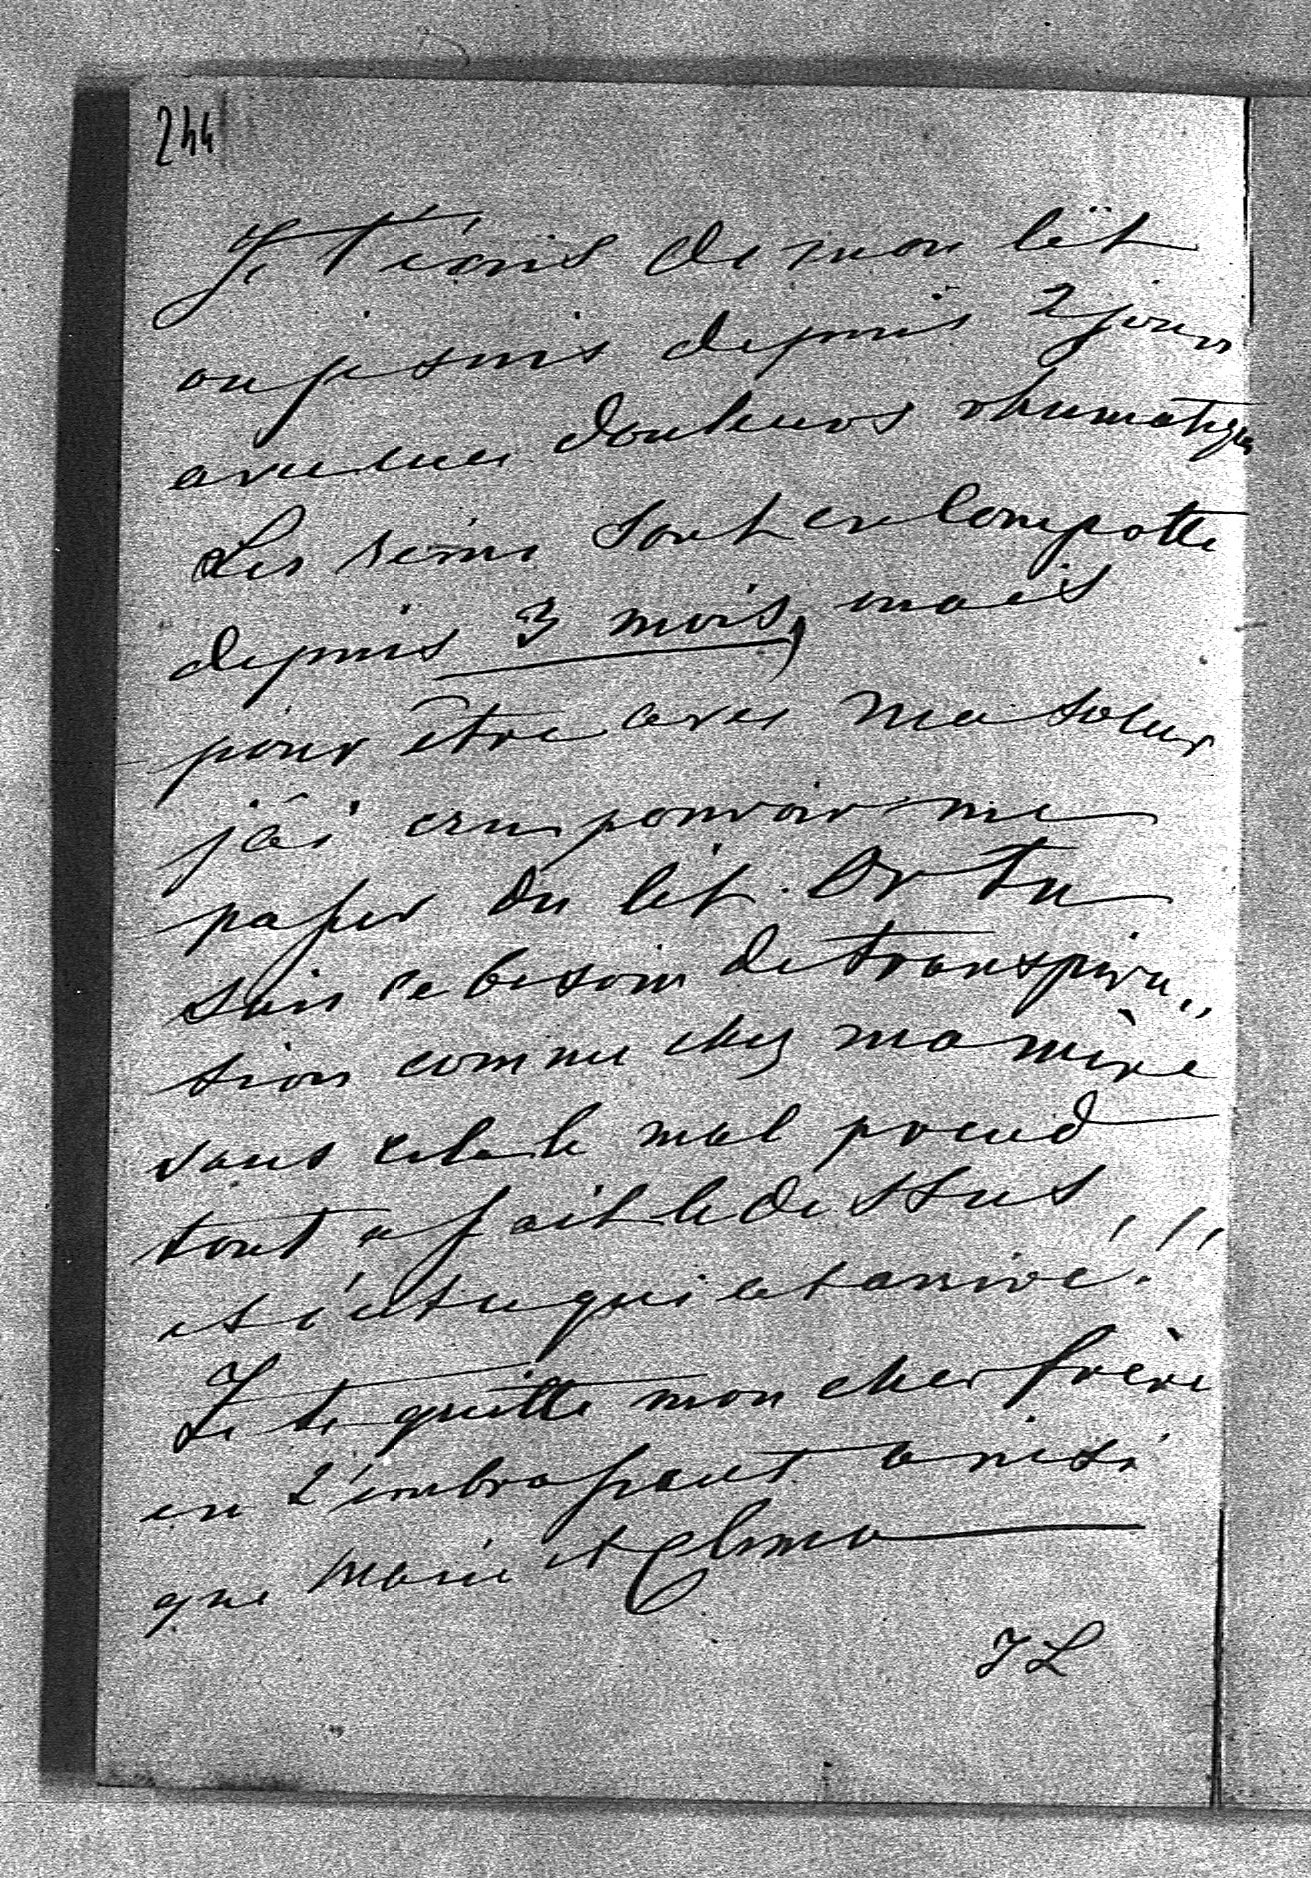 244
Je t'écris de mon lit
ou je suis depuis 2 jours
avec mes douleurs rhumatiques
Les reins sont en compotte
depuis 3 mois, mais
pour être avec ma soeur
j'ai cru pouvoir me
passer du lit. Or tu
sais le besoin de transpira"
tion comme chez ma mère
sans cela le mal prend
tout a fait le dessus,
et c'est ce qui est arrivé.!!
Je te quitte mon cher frère
en t'embrassant ainsi
que Marie et Elma
JL